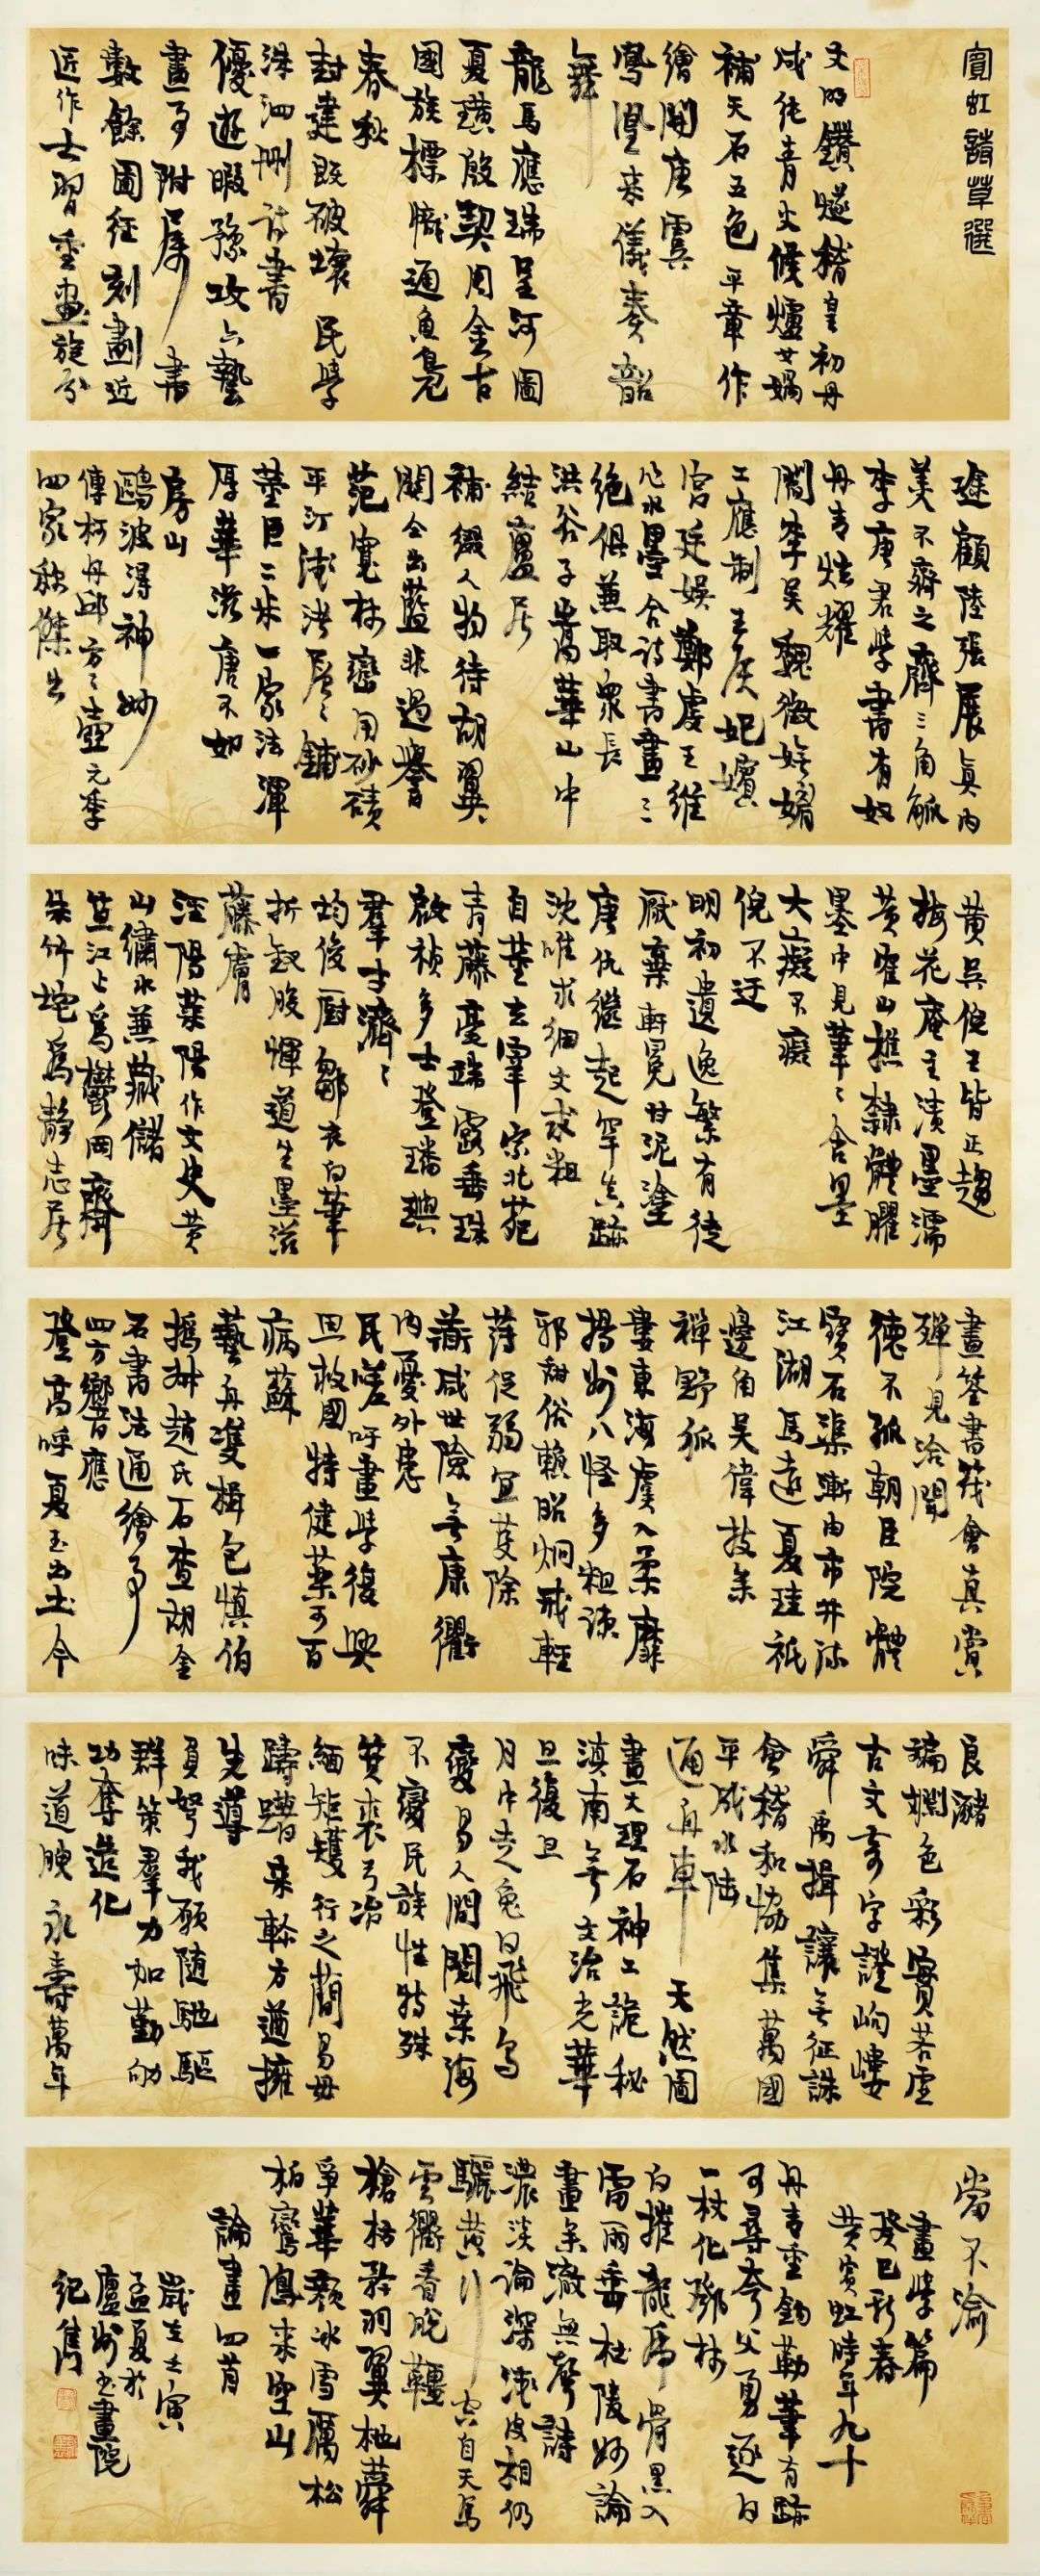 賓虹詩草選
文明鑽燧稽皇初丹
成純青火候爐女媧
補天石五色平章作
繪開唐虞
鳳凰來儀奏韶
舞
龍馬應瑞呈河圖
夏璜殷契周金古
國族標幟通魚鳧
春秋
封建既破壞民學
洙泗刪詩書
優遊暇豫攻六藝
畫事附屬書
數餘圖經刻劃近
匠作士習重畫旋分
途顧陸張展真內
美不齊之齊三角觚
李唐君學書有奴
丹青炫耀
閻李吳魏徵嫵媚
工應制王侯妃嬪
宮廷娛鄭虔王維
水墨合詩書畫三
絕俱兼取眾長
洪谷子嵩華山中
結廬居
補綴人物待胡翼
關仝出藍非過譽
范寬林巒用砂磧
平汀淺渚層層鋪
董巨二米一家法渾
厚華滋唐不如
房山
鷗波得神妙
傳柯丹邱方方壺元季
四家稱傑出
黃吳倪王皆正趨
梅花庵主漬墨濡
黃鶴山樵隸體臞
墨中見筆筆含墨
大癡不癡
倪不迂
明初遺逸繁有徒
厭棄軒冕甘泥塗
唐仇繼起罕真跡
沈唯求細文求粗
自董玄宰宗北苑
青藤毫端露垂珠
啟禎多士登璠璵
群才濟濟
均俊廚鄒衣白筆
折釵股惲道生墨滋
藤膚
涇陽萊陽作文史黃
山繡水兼藏儲
笪江上為鬱岡齋
朱竹垞為靜志居
畫筌書筏會真賞
殫見洽聞
德不孤朝臣院體
寶石渠漸由市井流
江湖馬遠夏珪祇
邊角吳偉技窮
禪野狐
婁東海虞入柔靡
揚州八怪多粗疏
邪甜俗賴昭炯戒輕
薄促弱宜芟除
咸世險無康衢
內憂外患
民嗟吁畫學復興
思救國特健藥可百
病蘇
藝舟雙楫包慎伯
撝叔趙氏石查胡金
石書法通繪事
四方響應
登高呼夏玉出土今
良渚
斒斕色彩實若虛
古文奇字證岣嶁
舜禹揖讓無征誅
會稽和協集萬國
平成水陸
通舟車天然圖
畫大理石神工詭秘
滇南無文治光華
旦復旦
月中走兔日飛烏
變易人間閱桑海
不變民族性特殊
箕裘弓冶
緬矩矱行之簡易毋
躊躇來軫方遒擁
先導
負弩我願隨馳驅
群策群力加勤劬
功奪造化
味道腴永壽萬年
當不渝
畫學篇
癸巳新春
黃賓虹時年九十
丹青重鉤勒筆有跡
可尋夸父勇逐日
一杖化鄧林
白摧龍虎骨黑入
雷雨垂杜陵妙論
畫象澈無聲詩
濃淡論深淺皮相仍
驪黃自天馬
雲衢看脫韁
槍枋矜羽翼枇蕣
爭華顏冰雪厲松
柏鸞鳳來空山
論畫四首
歲在壬寅
孟夏於
廬州書畫院
紀